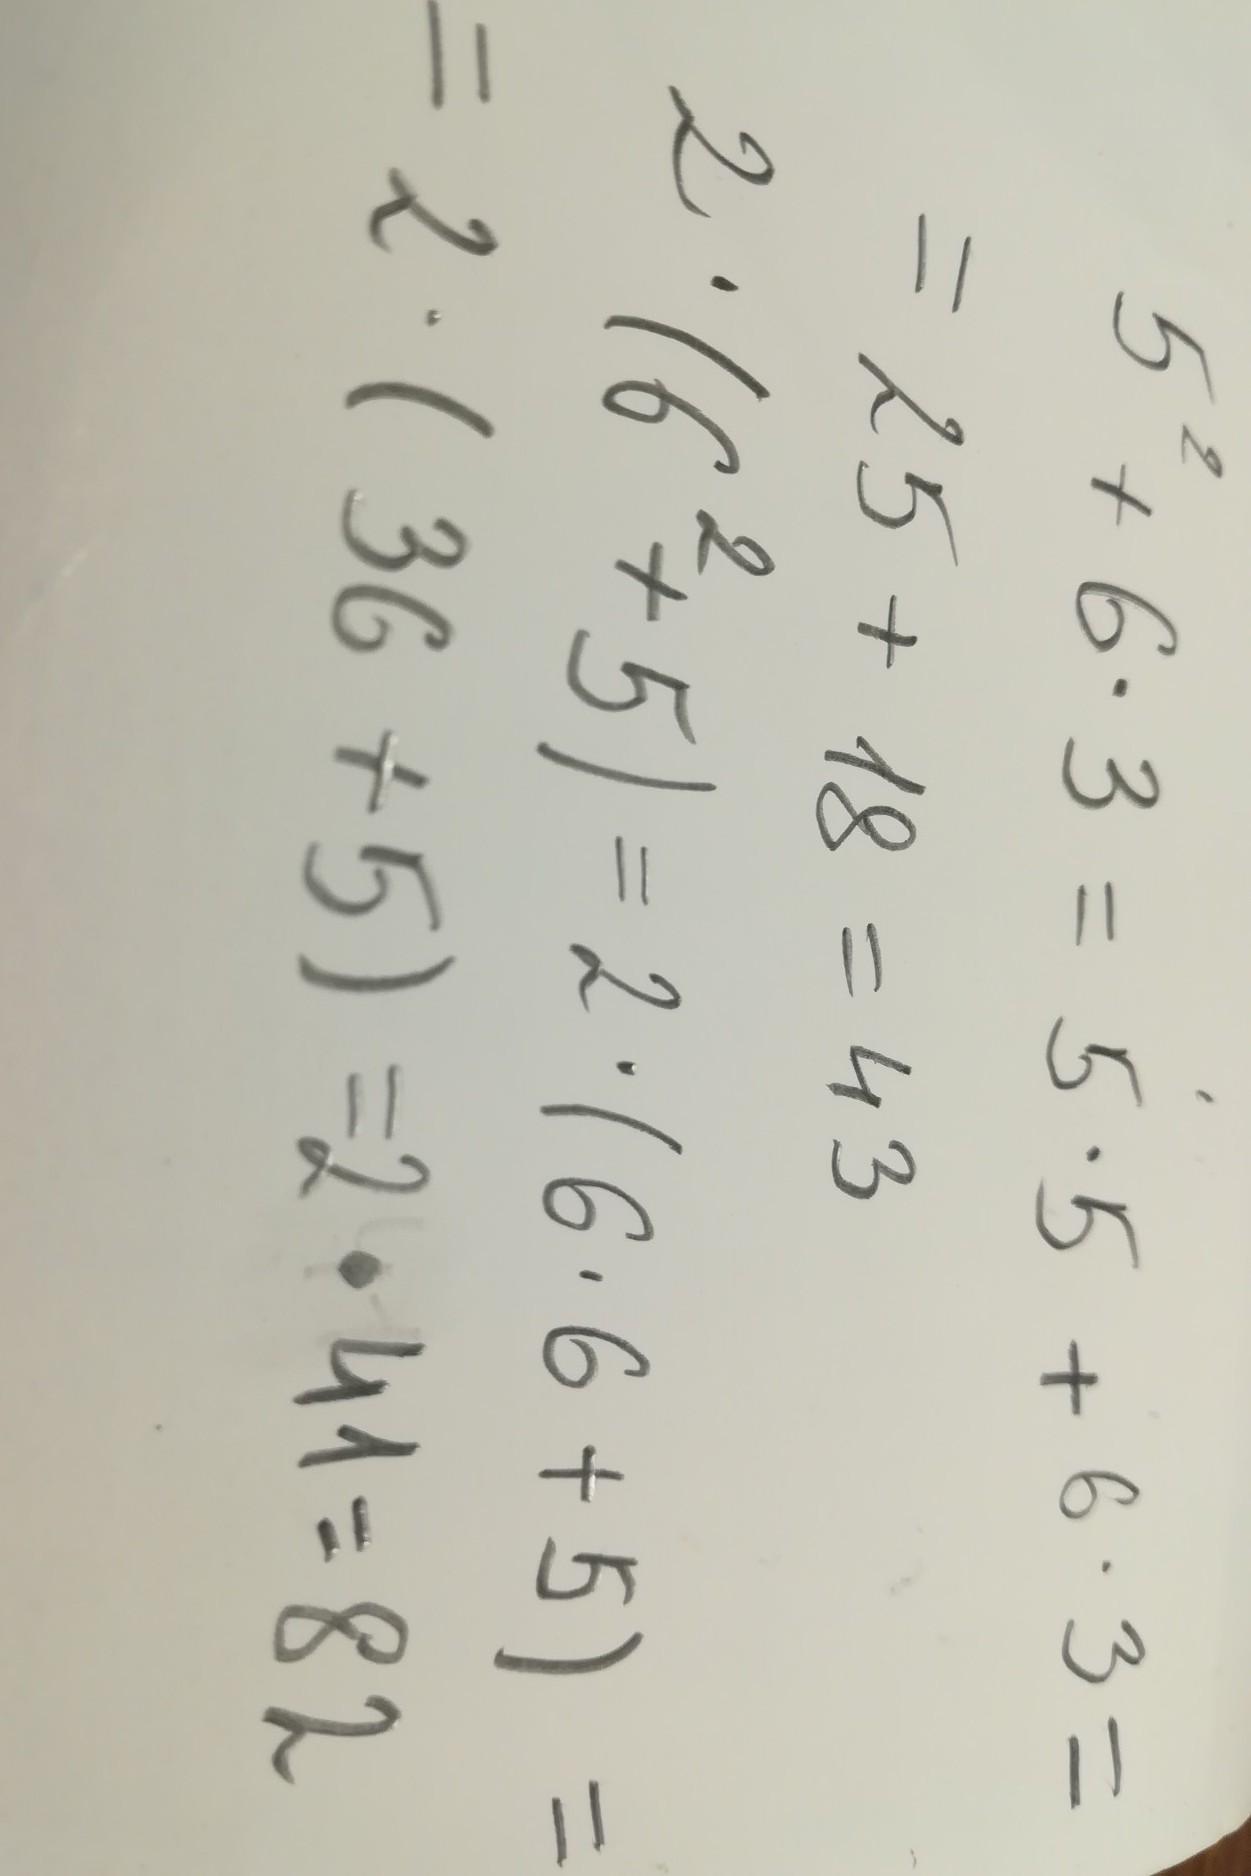 5² + 6 · 3 = 5 · 5 + 6 · 3 =
= 25 + 18 = 43
2 · (6² + 5) = 2 · (6 · 6 + 5) =
= 2 · (36 + 5) = 2 · 41 = 82